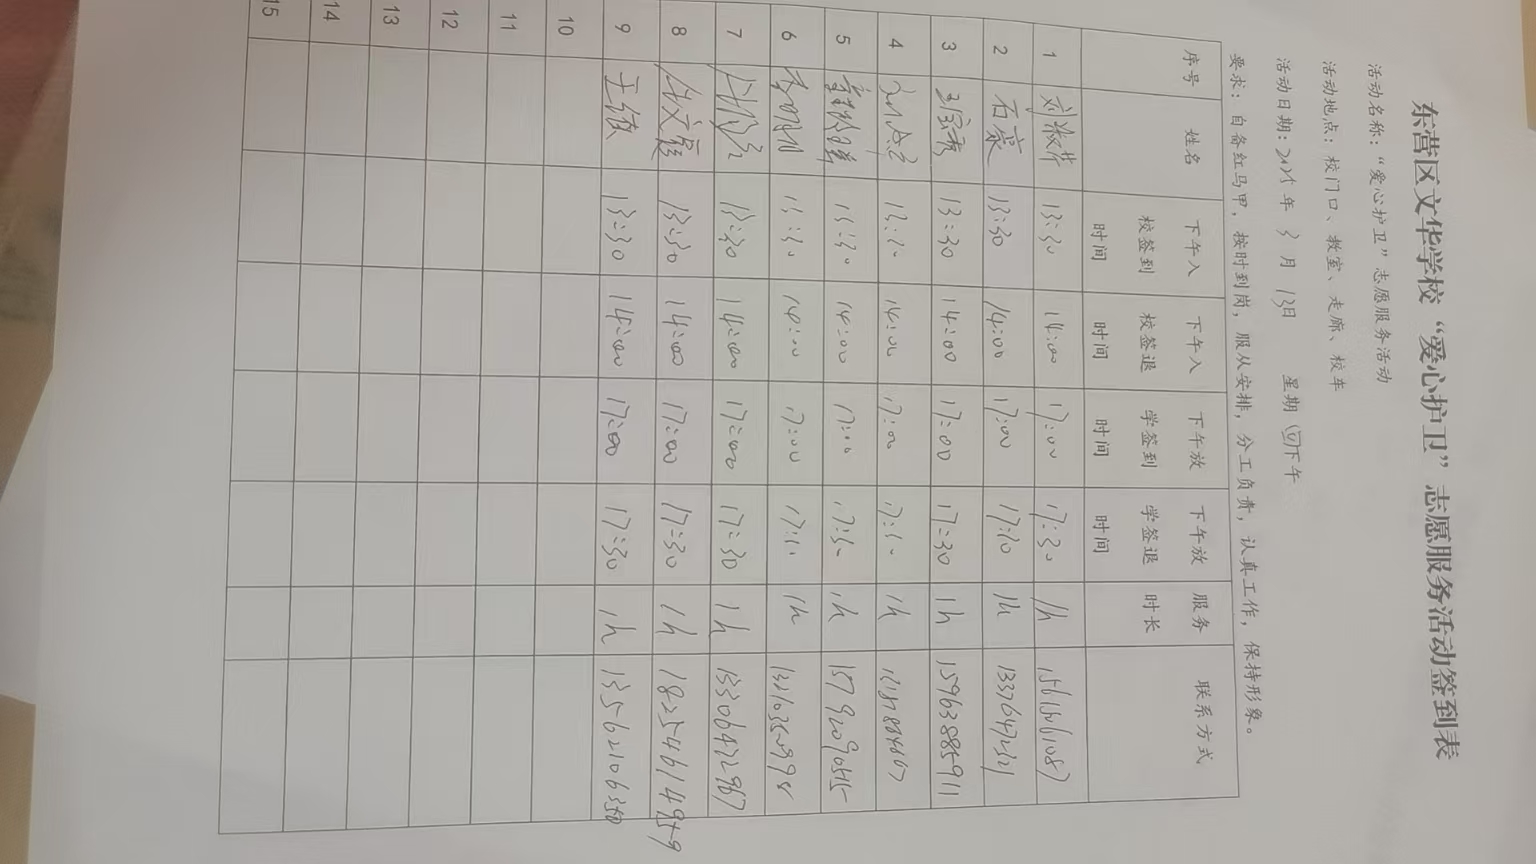 东营区文华学校“爱心护卫”志愿服务活动签到表
活动名称：“爱心护卫”志愿服务活动
活动地点：校门口、教室、走廊、校车
活动日期：2025年 3 月 13日 星期四下午
要求：自备红马甲，按时到岗，服从安排，分工负责，认真工作，保持形象。
序号 姓名 下午入校签到时间 下午入校签退时间 下午放学签到时间 下午放学签退时间 服务时长 联系方式
1 刘淑芹 13:30 14:00 17:00 17:30 1h
2 石蒙 13:30 14:00 17:00 17:30 1h
3 13:30 14:00 17:00 17:30 1h 15963885911
4 13:30 14:00 17:00 17:30 1h
5 13:30 14:00 17:00 17:30 1h
6 13:30 14:00 17:00 17:30 1h
7 13:30 14:00 17:00 17:30 1h 13306472967
8 13:30 14:00 17:00 17:30 1h 18254614959
9 13:30 14:00 17:00 17:30 1h
10
11
12
13
14
15